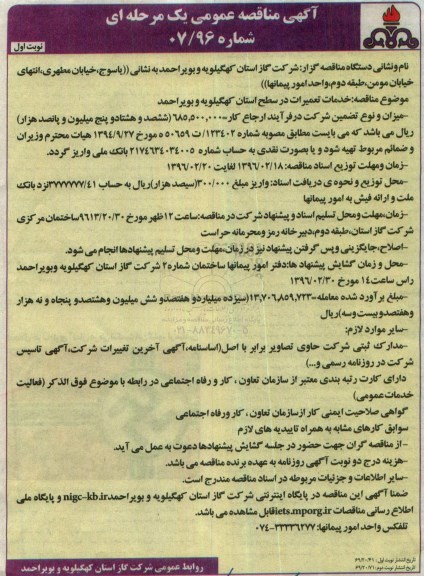 آگهی مناقصه عمومی یک مرحله ای
شماره ۰۷/۹۶
نوبت اول
نام ونشانی دستگاه مناقصه گزار: شرکت گاز استان کهگیلویه و بویراحمد به نشانی ((یاسوج،خیابان مطهری،انتهای
خیابان مومن،طبقه دوم،واحد امور پیمانها))
موضوع مناقصه:خدمات تعمیرات در سطح استان کهگیلویه و بویراحمد
-میزان و نوع تضمین شرکت درفرآیند ارجاع کار-۶۸۵,۵۰۰,۰۰۰ (ششصد و هشتادو پنج میلیون و پانصد هزار)
ریال می باشد که می بایست مطابق مصوبه شماره ۱۲۳۴۰۲/ت ۵۰۶۵۹ ه مورخ ۱۳۹۴/۹/۲۷ هیات محترم وزیران
و ضمائم مربوط تهیه شود و یا بصورت نقدی به حساب شماره ۲۱۷۴۶۳۴۰۳۴۰۰۵ بانک ملی واریز گردد.
-زمان ومهلت توزیع اسناد مناقصه: ۱۳۹۶/۰۲/۱۸ لغایت ۱۳۹۶/۰۲/۲۰
-محل توزیع و نحوه ی دریافت اسناد: واریز مبلغ ۳۰۰/۰۰۰ (سیصد هزار)ریال به حساب ۳۷۷۷۷۷۷/۴۱ نزد بانک
ملت و ارائه فیش به امور پیمانها
-زمان،مهلت ومحل تسلیم اسناد و پیشنهاد شرکت در مناقصه:ساعت ۱۲ ظهر مورخ ۹۶۱۳/۲/۳۰ ساختمان مرکزی
شرکت گاز استان،طبقه دوم،دبیرخانه رمز ومحرمانه حراست
-اصلاح،جایگزینی وپس گرفتن پیشنهاد نیز در زمان،مهلت ومحل تسلیم پیشنهادها انجام می شود.
-محل و زمان گشایش پیشنهاد ها:دفتر امور پیمانها ساختمان شماره۲ شرکت گاز استان کهگیلویه وبویراحمد
راس ساعت ۱۴ مورخ ۱۳۹۶/۰۲/۳۰
-مبلغ برآورد شده معامله-۱۳,۷۰۶,۸۵۹,۷۲۳ (سیزده میلیاردو هفتصدو شش میلیون وهشتصدو پنجاه و نه هزار
وهفتصدو بیست وسه)ریال
-سایر موارد لازم:
-مدارک ثبتی شرکت حاوی تصاویر برابر با اصل(اساسنامه،آگهی آخرین تغییرات شرکت،آگهی تاسیس
شرکت در روزنامه رسمی و...)
دارای کارت رتبه بندی معتبر از سازمان تعاون ، کار و رفاه اجتماعی در رابطه با موضوع فوق الذکر (فعالیت
خدمات عمومی)
گواهی صلاحیت ایمنی کار از سازمان تعاون ، کار ورفاه اجتماعی
سوابق کارهای مشابه به همراه تاییدیه های لازم
- از مناقصه گران جهت حضور در جلسه گشایش پیشنهادها دعوت به عمل می آید.
-هزینه درج دو نوبت آگهی روزنامه به عهده برنده مناقصه می باشد.
-سایر اطلاعات و جزئیات مربوطه در اسناد مناقصه مندرج است.
ضمنا آگهی این مناقصه در پایگاه اینترنتی شرکت گاز استان کهگیلویه و بویراحمد nigc-kb.ir و پایگاه ملی
اطلاع رسانی مناقصات iets.mporg.ir قابل مشاهده می باشد.
تلفکس واحد امور پیمانها: ۳۳۳۳۶۲۷۷-۰۷۴
روابط عمومی شرکت گاز استان کهگیلویه و بویراحمد